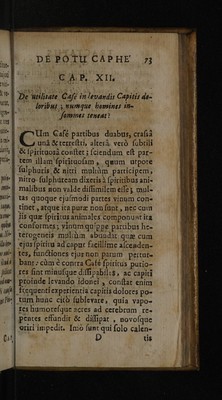 DE POTU CAPHE 73
CAP. XII.
De utilitate Cafe in levandis Capitis do-
loribus, numque homines in-
somnes teneat?
CUm Cafe partibus duabus, crassâ
unâ & terrestri, alterâ verò subtili
& spirituosâ constet; sciendum est par-
tem illam spirituosam, quum utpote
sulphuris & nitri multùm participem,
nitro-sulphuream dixeris à spiritibus ani-
malibus non valde dissimilem esse; mul-
tas quoque ejusmodi partes vinum con-
tinet: atque ita puræ non sunt, nec cum
iis quæ spiritus animales componunt ita
conformes, vinumquippe partibus he-
terogeneis multùm abundat quæ cum
ejus spiritu ad caput facillimè ascenden-
tes, functiones ejus non parum pertur-
bant: cùm è contra Cafe spiritus purio-
res sint minusque dissipabiles, ac capiti
proinde levando idonei, constat enim
frequenti experientia capitis dolores po-
tum hunc citò sublevare, quia vapo-
res humoresque acres ad cerebrum re-
pentes effundit & dissipat, novosque
oriri impedit. Imò sunt qui solo calen-
D tis